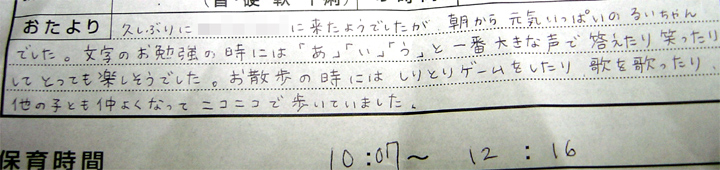 (首・硬・軟・下痢)
おたより 久しぶりに に来たようでしたが 朝から 元気いっぱいの るいちゃん
でした。文字のお勉強の時には「あ」「い」「う」と一番大きな声で答えたり笑ったり
してとっても楽しそうでした。お散歩の時には しりとりゲームをしたり 歌を歌ったり、
他の子とも仲よくなって ニコニコで歩いていました。
保育時間 10:07～ 12:16